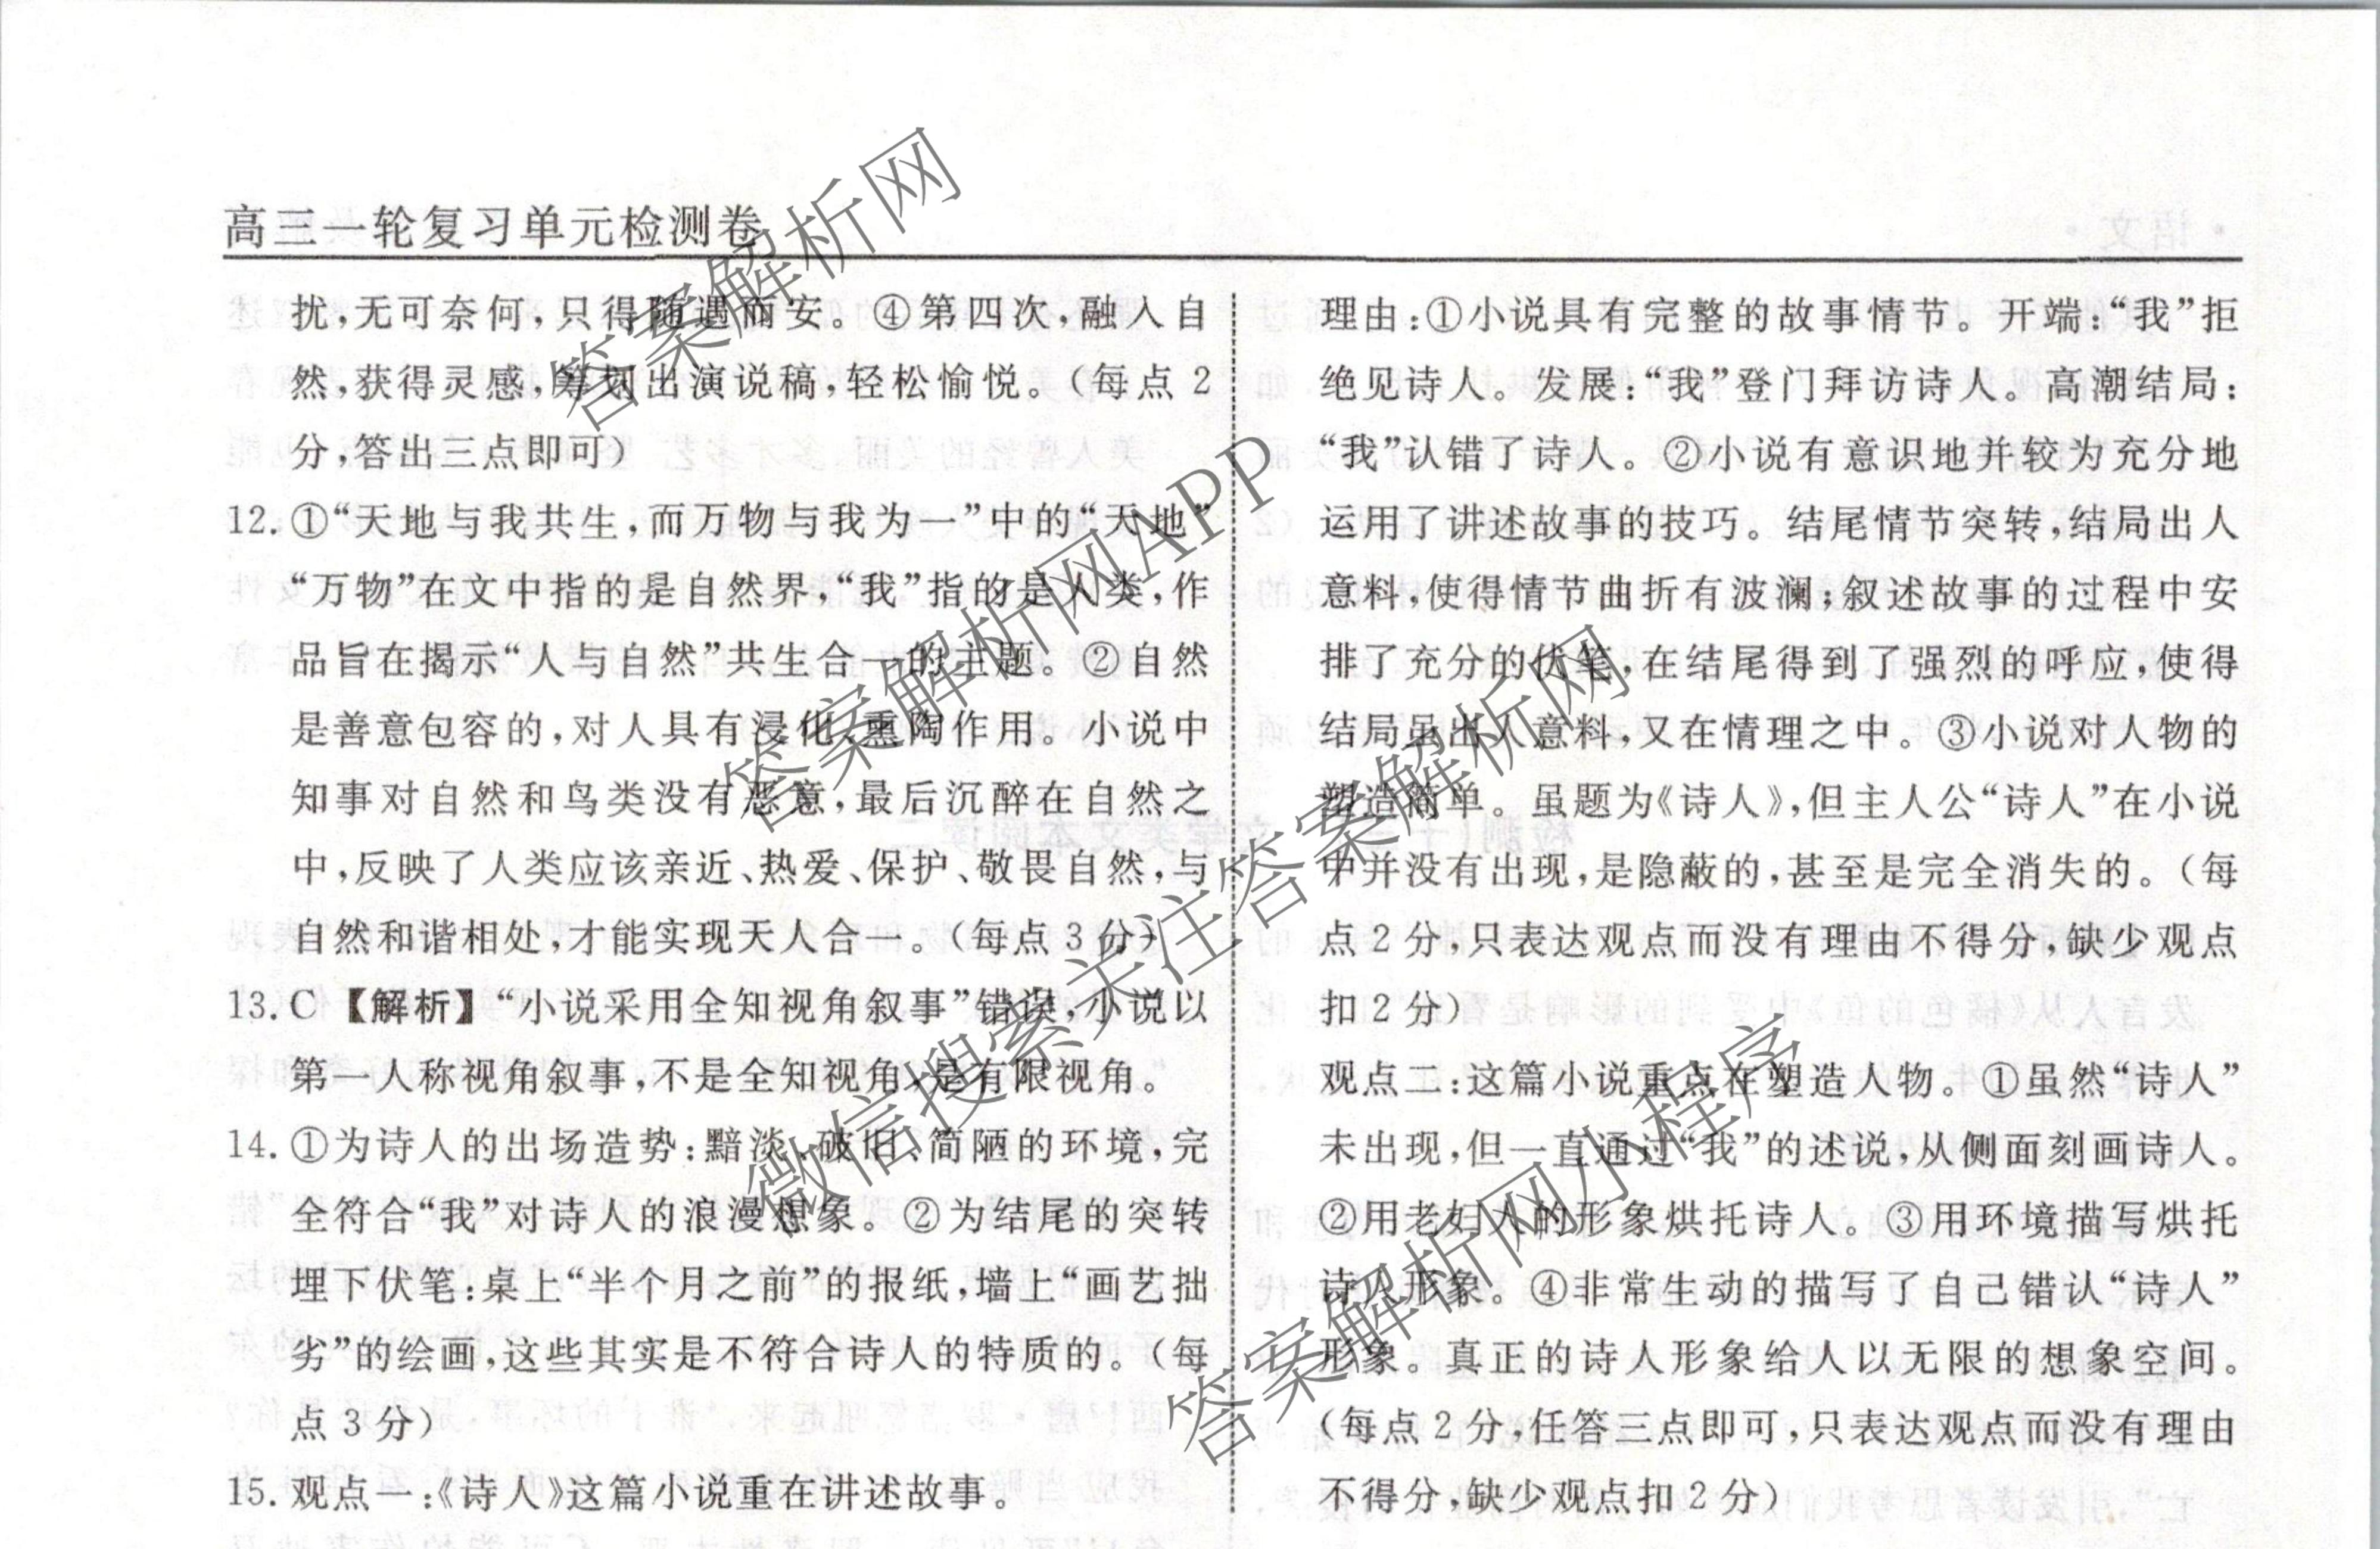 高三一轮复习单元检测卷
扰,无可奈何,只得随遇而安。④第四次,融入自
然,获得灵感,筹划出演说稿,轻松愉悦。(每点2
分,答出三点即可)
12.①“天地与我共生,而万物与我为一”中的“天地”
“万物”在文中指的是自然界,“我”指的是人类,作
品旨在揭示“人与自然”共生合一的主题。②自然
是善意包容的,对人具有浸化、熏陶作用。小说中
知事对自然和鸟类没有恶意,最后沉醉在自然之
中,反映了人类应该亲近、热爱、保护、敬畏自然,与
自然和谐相处,才能实现天人合一。(每点3分)
13.C【解析】“小说采用全知视角叙事”错误,小说以
第一人称视角叙事,不是全知视角,是有限视角。
14.①为诗人的出场造势:黯淡、破旧、简陋的环境,完
全符合“我”对诗人的浪漫想象。②为结尾的突转
埋下伏笔:桌上“半个月之前”的报纸,墙上“画艺拙
劣”的绘画,这些其实是不符合诗人的特质的。(每
点3分)
15.观点一:《诗人》这篇小说重在讲述故事。
理由:①小说具有完整的故事情节。开端:“我”拒
绝见诗人。发展:“我”登门拜访诗人。高潮结局:
“我”认错了诗人。②小说有意识地并较为充分地
运用了讲述故事的技巧。结尾情节突转,结局出人
意料,使得情节曲折有波澜;叙述故事的过程中安
排了充分的伏笔,在结尾得到了强烈的呼应,使得
结局虽出人意料,又在情理之中。③小说对人物的
塑造简单。虽题为《诗人》,但主人公“诗人”在小说
中并没有出现,是隐蔽的,甚至是完全消失的。(每
点2分,只表达观点而没有理由不得分,缺少观点
扣2分)
观点二:这篇小说重点在塑造人物。①虽然“诗人”
未出现,但一直通过“我”的述说,从侧面刻画诗人。
②用老妇人的形象烘托诗人。③用环境描写烘托
诗人形象。④非常生动的描写了自己错认“诗人”
形象。真正的诗人形象给人以无限的想象空间。
(每点2分,任答三点即可,只表达观点而没有理由
不得分,缺少观点扣2分)
答案解析网
答案解析网APP
微信搜索关注答案解析网
答案解析网小程序